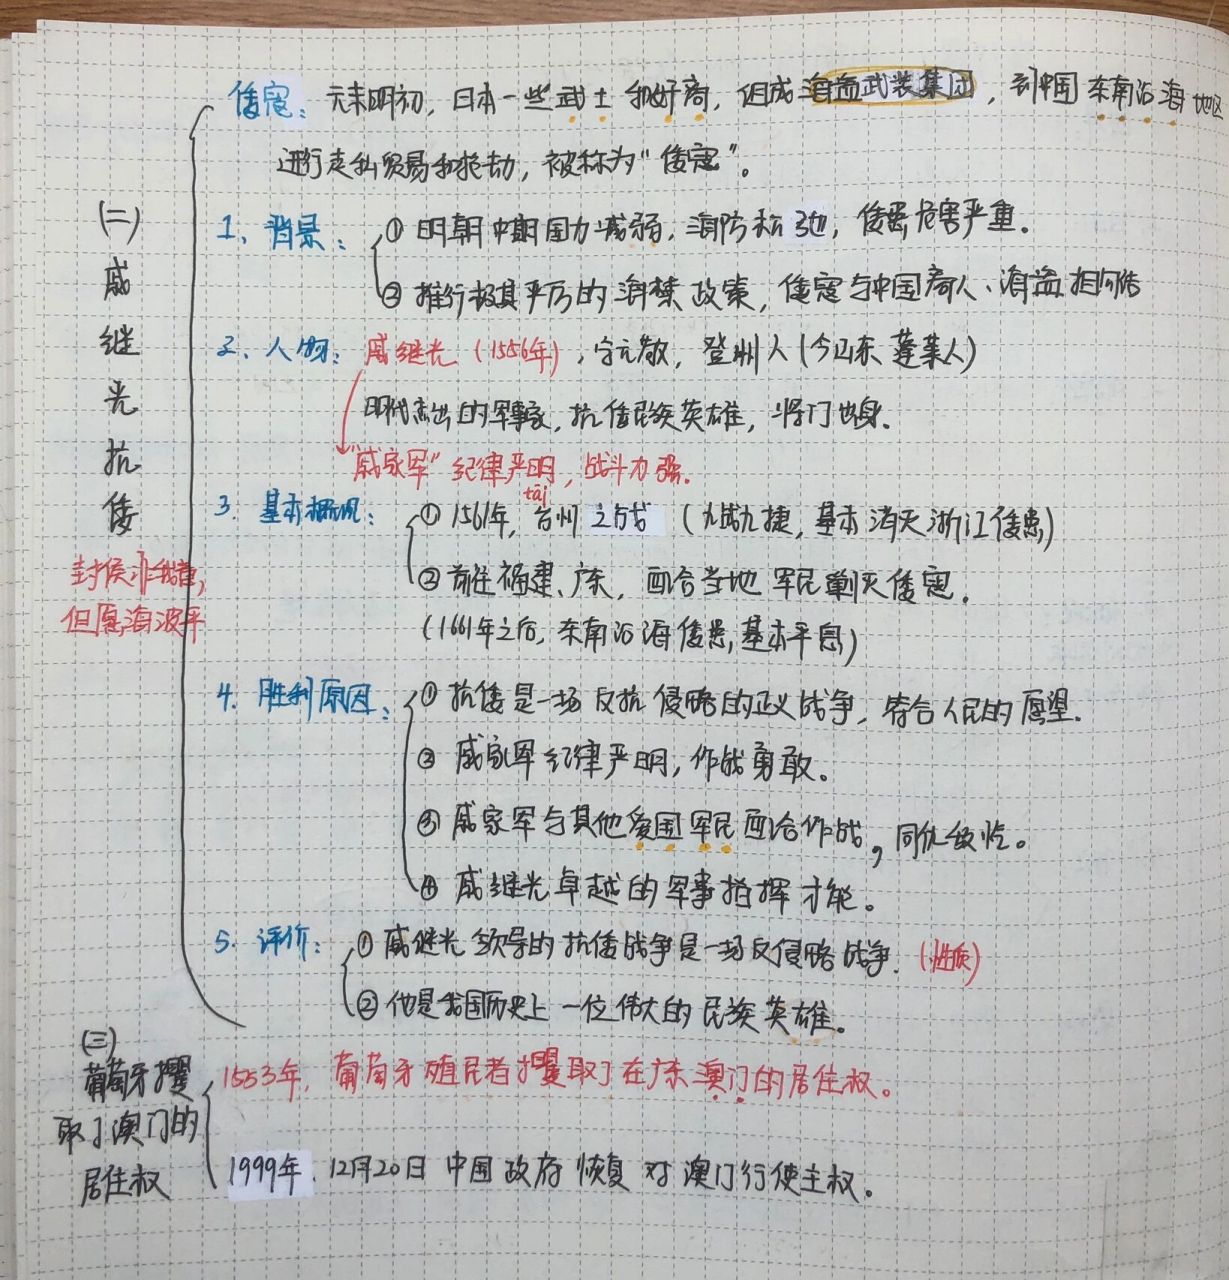 倭寇：元末明初，日本一些武士和奸商，组成海盗武装集团，到中国东南沿海地区
进行走私贸易和抢劫，被称为“倭寇”。
(二)戚继光抗倭
封侯非我意，
但愿海波平
1、背景：①明朝中期国力减弱，海防松弛，倭患危害严重。
②推行极其严厉的海禁政策，倭寇与中国商人、海盗相勾结
2、人物：戚继光(1556年)，字元敬，登州人(今山东蓬莱人)
明代杰出的军事家，抗倭民族英雄，将门出身。
“戚家军”纪律严明，战斗力强。
tāi
3、基本概况：①1561年，台州之战(九战九捷，基本消灭浙江倭患)
②前往福建、广东，配合当地军民剿灭倭寇。
(1661年之后，东南沿海倭患，基本平息)
4、胜利原因：①抗倭是一场反抗侵略的正义战争，符合人民的愿望。
②戚家军纪律严明，作战勇敢。
③戚家军与其他爱国军民配合作战，同仇敌忾。
④戚继光卓越的军事指挥才能。
5、评价：①戚继光领导的抗倭战争是一场反侵略战争．(性质)
②他是我国历史上一位伟大的民族英雄。
(三)
葡萄牙攫
取了澳门的
居住权
1553年，葡萄牙殖民者攫取了在广东澳门的居住权。
1999年．12月20日中国政府恢复对澳门行使主权。